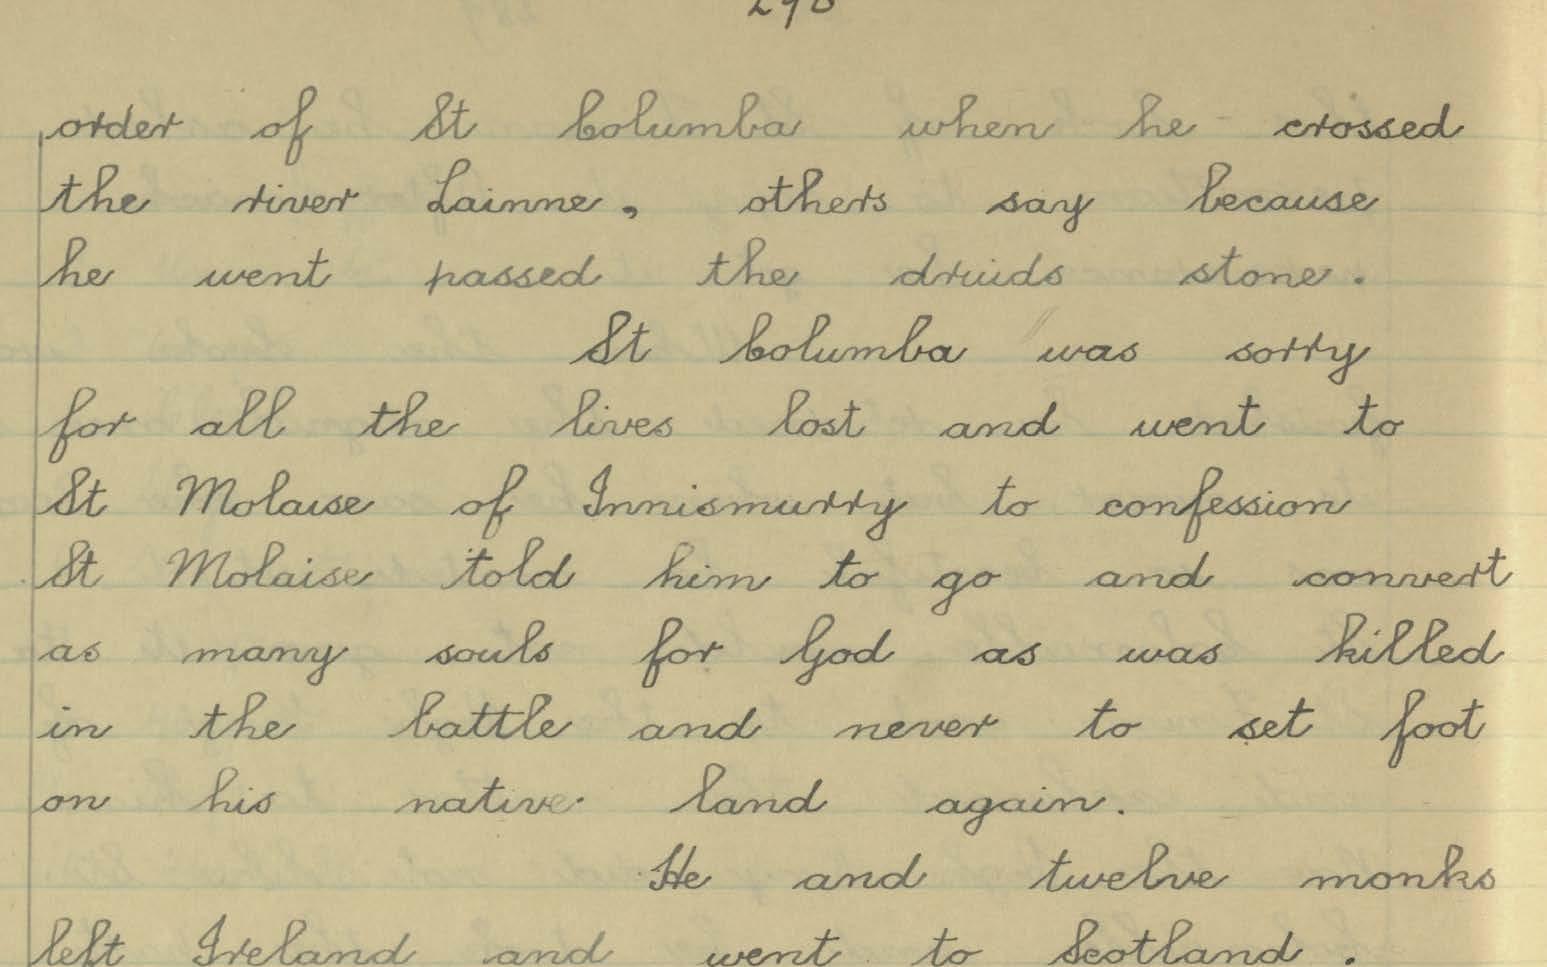 290
order of St Columba when he crossed
the river Lainne, others say because
he went passed the druids stone.
St Columba was sorry
for all the lives lost and went to
St Molaise of Innismurry to confession
St Molaise told him to go and convert
as many souls for God as was killed
in the battle and never to set foot
on his native land again.
He and twelve monks
left Ireland and went to Scotland.